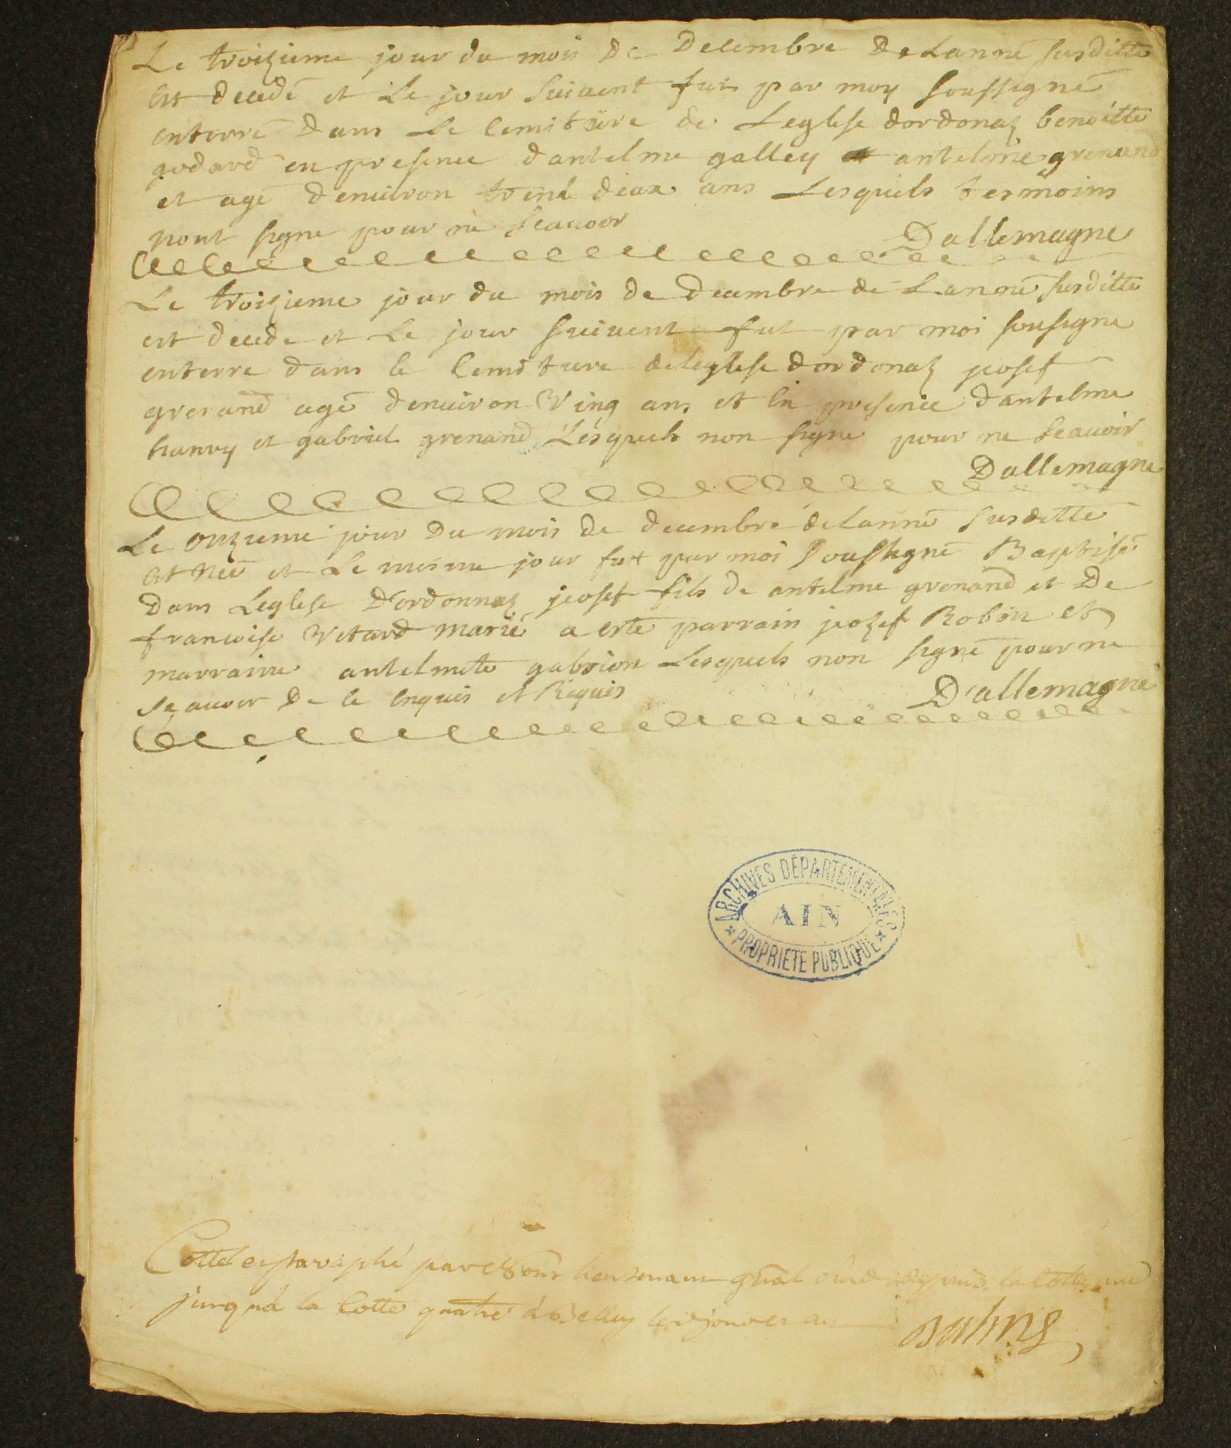 Le troizieme jour du mois De Decembre De Lanneé susditte
est decedé et Le jour suivent fut par moy soussigné
enterré dans Le Cemitiere de Leglise dordonaz benoitte
godard en presence dantelme galley antelme grenand
et agé denviron trent deux ans Lesquels tesmoins
nont signe pour ne scavoir Dallemagne
Le troizieme jour du mois de decembre de Lanneé susditte
est decede et Le jour suivent fut par moi sousigne
enterre dans le Cemitiere deleglise dordonaz josef
grenand agé denviron Ving ans et en presence dantelme
hanry et gabriel grenand Lesquels non signe pour ne scavoir
Dallemagne
Le onzieme jour Du mois de decembre delanneé susditte
est neé et Le mesme jour fut par moi soussigné Baptisé
Dans Leglise D'ordonnaz josef fils de antelme grenand et De
francoise Vetard marié a esté parrain jozef Robin et
marraine antelmete gabrion Lesquels non signé pour ne
scavoir De ce Enquis et Requis D'allemagne
ARCHIVES DÉPARTEMENTALES
AIN
PROPRIÉTÉ PUBLIQUE
Cotté et paraphé par lieutenant depuis la cotte une
jusqu'à la Cotte quatre à Belley